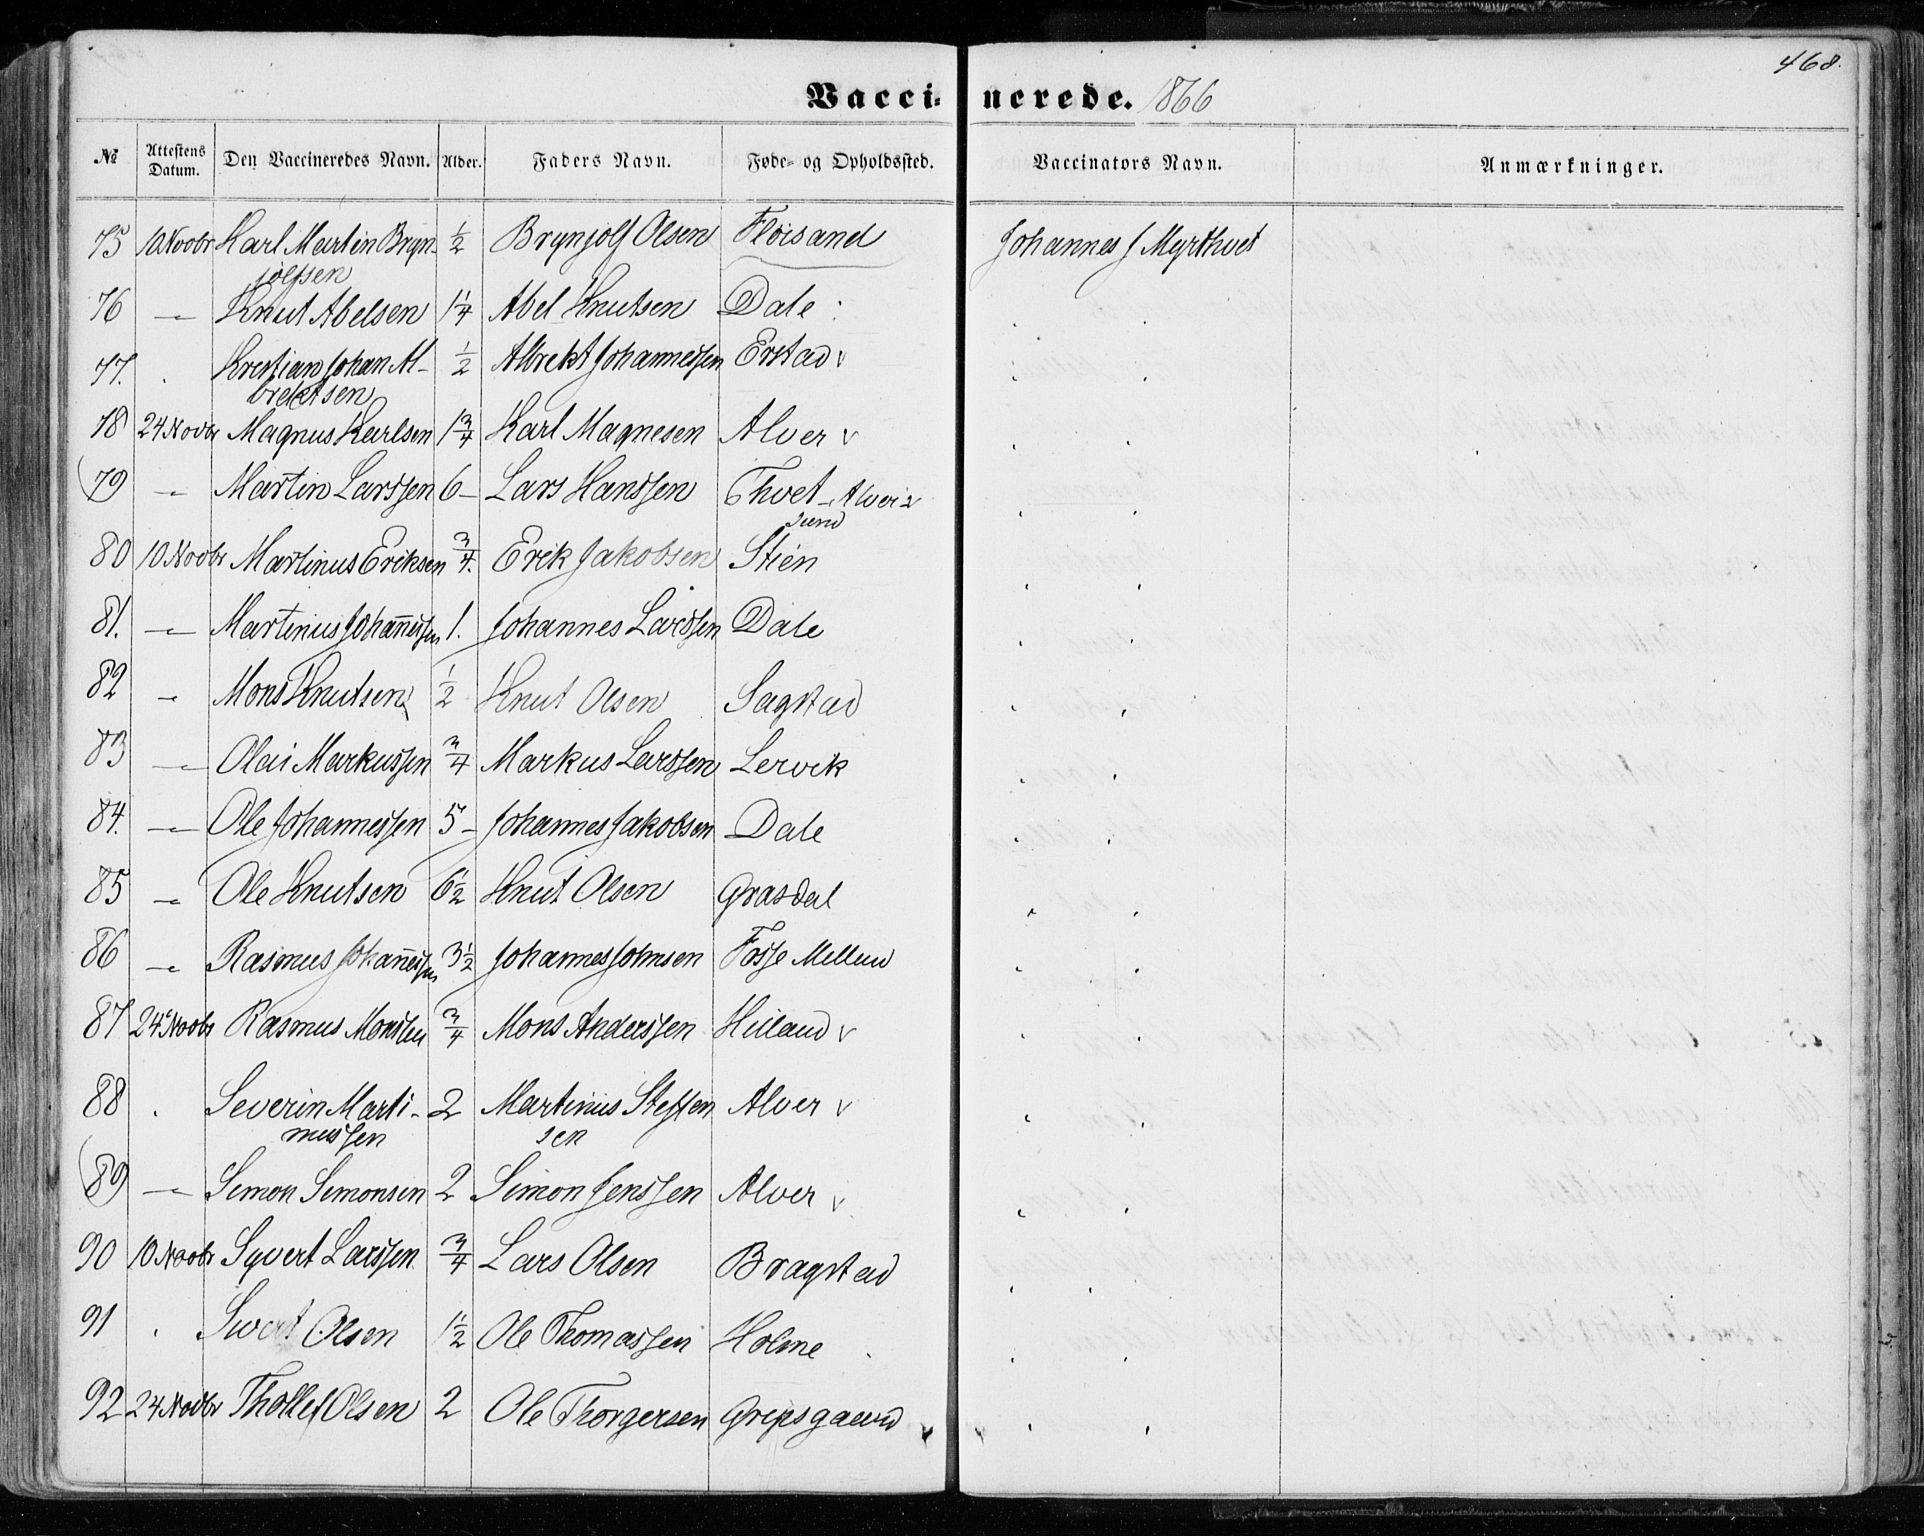 468.
Vacci- nerede. 1866
№ Attestens Datum. Den Vaccineredes Navn. Alder. Faders Navn. Føde- og Opholdssted. Vaccinators Navn. Anmærkninger.
75 10 Novbr Karl Martin Bryn- ½ Brynjolf Olsen Floisand Johannes J Myrthvet
jolfsen
76 — Knut Abelsen 1¼ Abel Knutsen Dale
77. Kristian Johan Al- ½ Albrekt Johannessen Erstad v
brektsen
78 24 Novbr Magnus Karlsen 1¾ Karl Magnesen Alver v
79 — Martin Larssen 6 — Lars Hanssen Thvet Alver-
sund
80 10 Novbr Martinus Eriksen ¾. Erik Jakobsen Stien
81. — Martinus Johannessen 1. Johannes Larssen Dale
82 — Mons Knutsen ½ Knut Olsen Sagstad
83 — Olai Markussen ¾ Markus Larssen Lervik
84. — Ole Johannessen 5 — Johannes Jakobsen Dale
85 — Ole Knutsen 6½ Knut Olsen Grasdal
86 — Rasmus Johannessen 3½ Johannes Johnsen Fosse Mellem
87 24 Novbr Rasmus Monssen ¾ Mons Anderssen Hilland v
88 Severin Marti- 2 Martinus Steffen Alver v
nussen sen
89 — Simon Simonsen 2 Simon Jenssen Alver v
90 10 Novbr Syvert Larssen ¾ Lars Olsen Bragstad
91 Sivert Olsen 1½ Ole Thomassen Holme
92 24 Novbr Thollef Olsen 2 Ole Thorgersen Gripsgaard